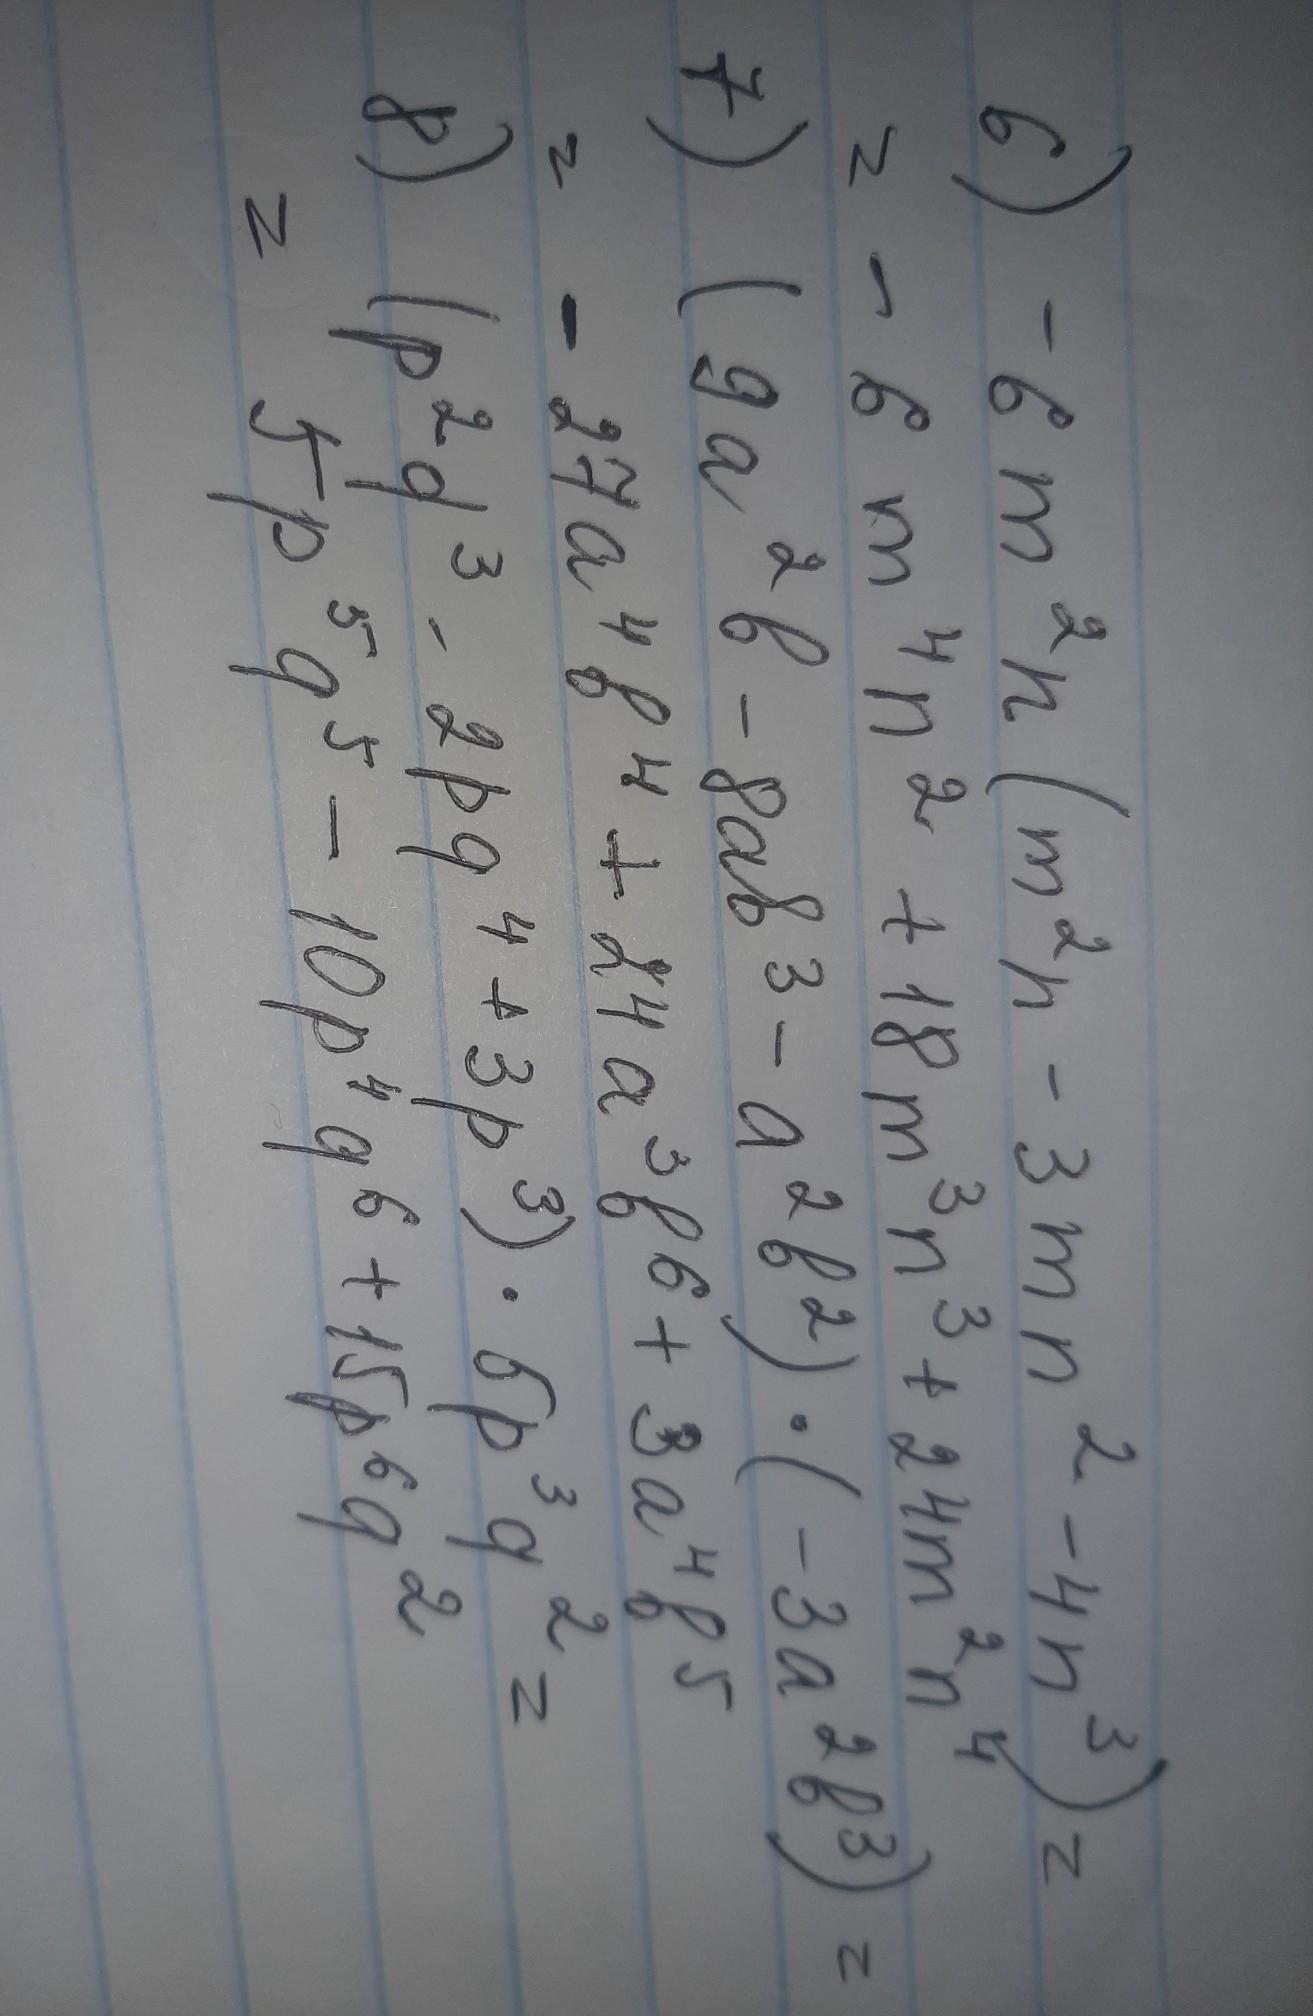 6) -6m²n(m²n - 3mn² - 4n³) =
= -6m⁴n² + 18m³n³ + 24m²n⁴
7) (9a²b - 8ab³ - a²b²) · (-3a²b³) =
= -27a⁴b⁴ + 24a³b⁶ + 3a⁴b⁵
8) (p²q³ - 2pq⁴ + 3p³) · 5p³q² =
= 5p⁵q⁵ - 10p⁴q⁶ + 15p⁶q²